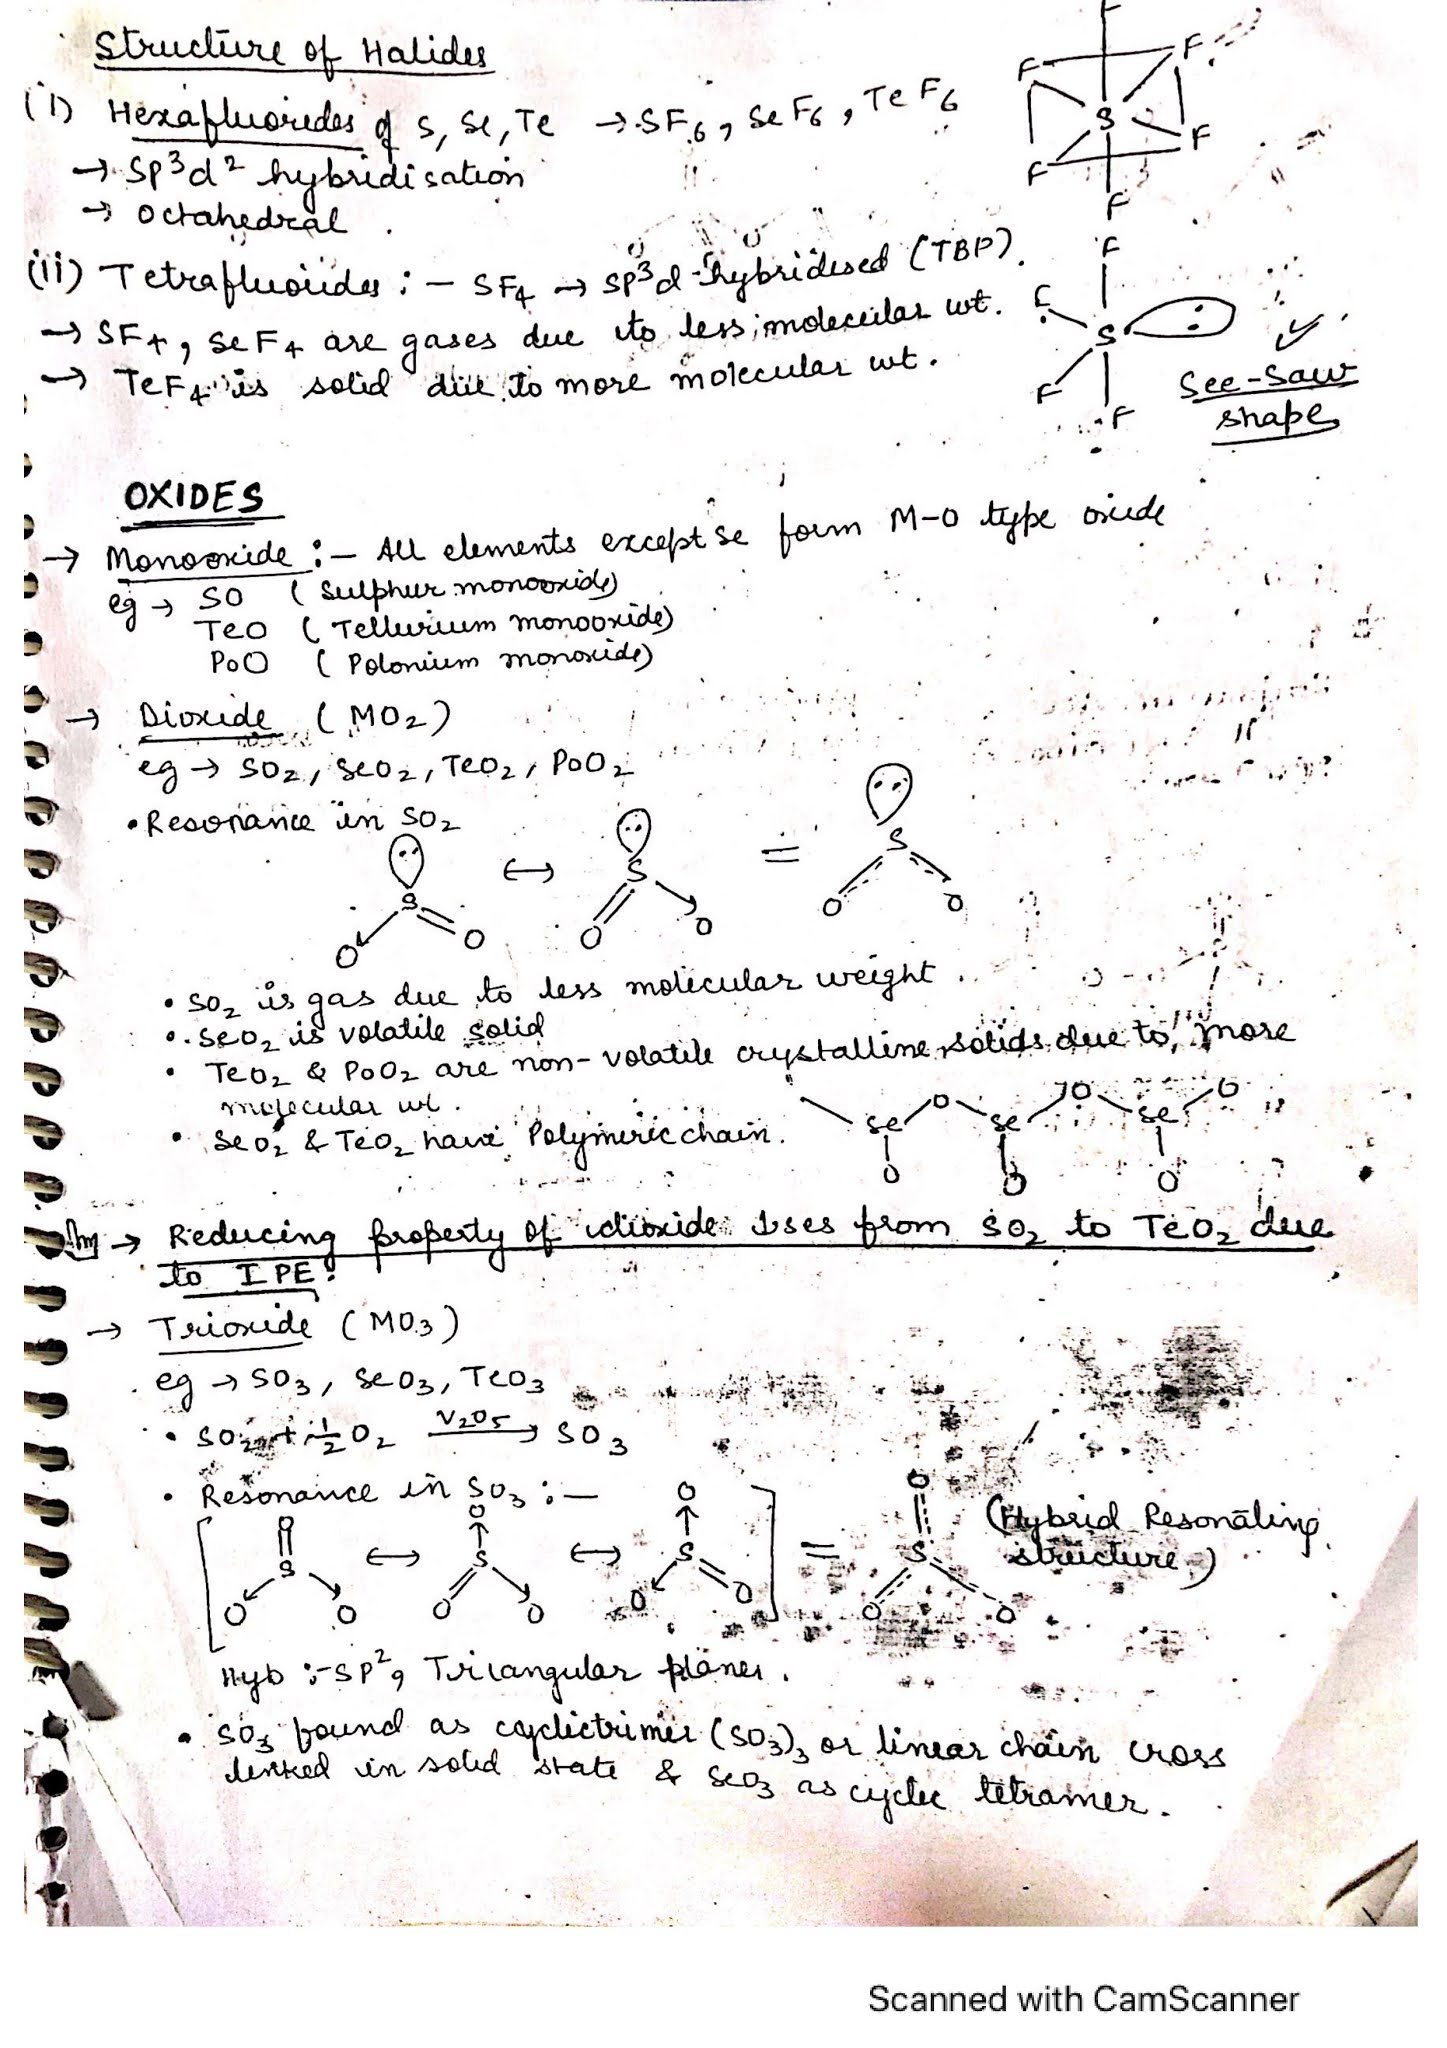 Structure of Halides
(i) Hexafluorides of S, Se, Te → SF6, SeF6, TeF6
→ Sp³d² hybridisation
→ Octahedral.
F
F F
S
F F
F
(ii) Tetrafluorides :- SF4 → Sp³d-hybridised (TBP).
→ SF4, SeF4 are gases due to less molecular wt.
→ TeF4 is solid due to more molecular wt.
F
F
S
F
F
See-Saw
shape
OXIDES
→ Monooxide :- All elements except Se form M-O type oxide
eg → SO (Sulphur monooxide)
TeO (Tellurium monooxide)
PoO (Polonium monoxide)
→ Dioxide (MO2)
eg → SO2, SeO2, TeO2, PoO2
• Resonance in SO2
S ↔ S = S
O O O O O O
• SO2 is gas due to less molecular weight.
• SeO2 is volatile solid
• TeO2 & PoO2 are non-volatile crystalline solids due to more
molecular wt.
• SeO2 & TeO2 have Polymeric chain.
Se O Se O Se O
O O O
Imp → Reducing property of dioxide ↓ses from SO2 to TeO2 due
to IPE.
→ Trioxide (MO3)
eg → SO3, SeO3, TeO3
• SO2 + ½ O2 V2O5 → SO3
• Resonance in SO3 :-
O O O O
[ S ↔ S ↔ S ] = S
O O O O O O O O
(Hybrid Resonating
structure)
Hyb :- SP², Triangular planer.
• SO3 found as cyclictrimer (SO3)3 or linear chain cross
linked in solid state & SeO3 as cyclic tetramer.
Scanned with CamScanner